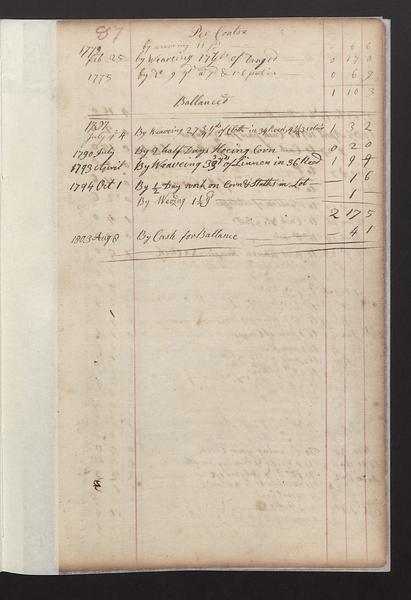 87
Per Contra
1772 by weaving 11 yds 0 6 6
Feb 25 by Weaveing 17½ yds of 0 17 0
1775 by Do 9 yd at & 1-6 0 6 9
1 10 3
Ballanced
1787
July 4 By Weaveing 27 yds Cloth in 39 Reed 1 3 2
1790 July By 2 half Days Hoeing Corn 0 2 0
1793 April By Weaveing 33 yds of Linnen in 36 Reed 1 9 4
1794 Oct 1 By ½ Day work on Corn Stalks in Lot — 1 6
By — 1
2 17 5
1803 Aug 8 By Cash for Ballance — 4 1